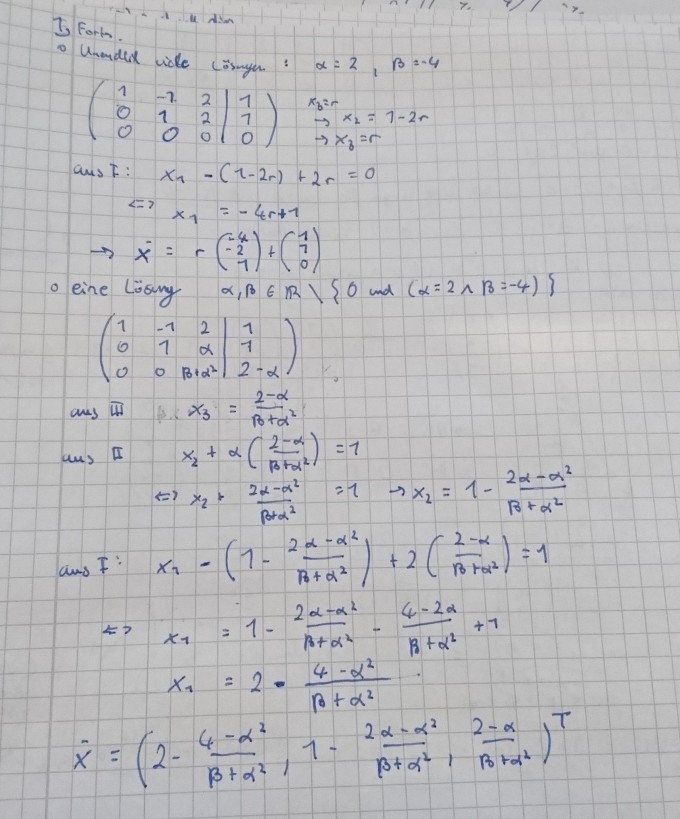 b) Forts.
o Unendlich viele Lösungen : α = 2 , β = -4
( 1 -1 2 | 1 ) x₃=r
( 0 1 2 | 1 ) → x₂ = 1-2r
( 0 0 0 | 0 ) → x₃=r
aus I: x₁ - (1-2r) + 2r = 0
<=> x₁ = -4r+1
→ x̄ = r (-4 -2 1) + (1 1 0)
o eine Lösung α, β ∈ ℝ \ { 0 und (α=2 ∧ β=-4) }
( 1 -1 2 | 1 )
( 0 1 α | 1 )
( 0 0 β+α² | 2-α )
aus III x₃ = (2-α)/(β+α²)
aus II x₂ + α ((2-α)/(β+α²)) = 1
<=> x₂ + (2α-α²)/(β+α²) = 1 → x₂ = 1 - (2α-α²)/(β+α²)
aus I: x₁ - (1 - (2α-α²)/(β+α²)) + 2 ((2-α)/(β+α²)) = 1
<=> x₁ = 1 - (2α-α²)/(β+α²) - (4-2α)/(β+α²) + 1
x₁ = 2 - (4-α²)/(β+α²)
x̄ = (2 - (4-α²)/(β+α²) , 1 - (2α-α²)/(β+α²) , (2-α)/(β+α²))ᵀ